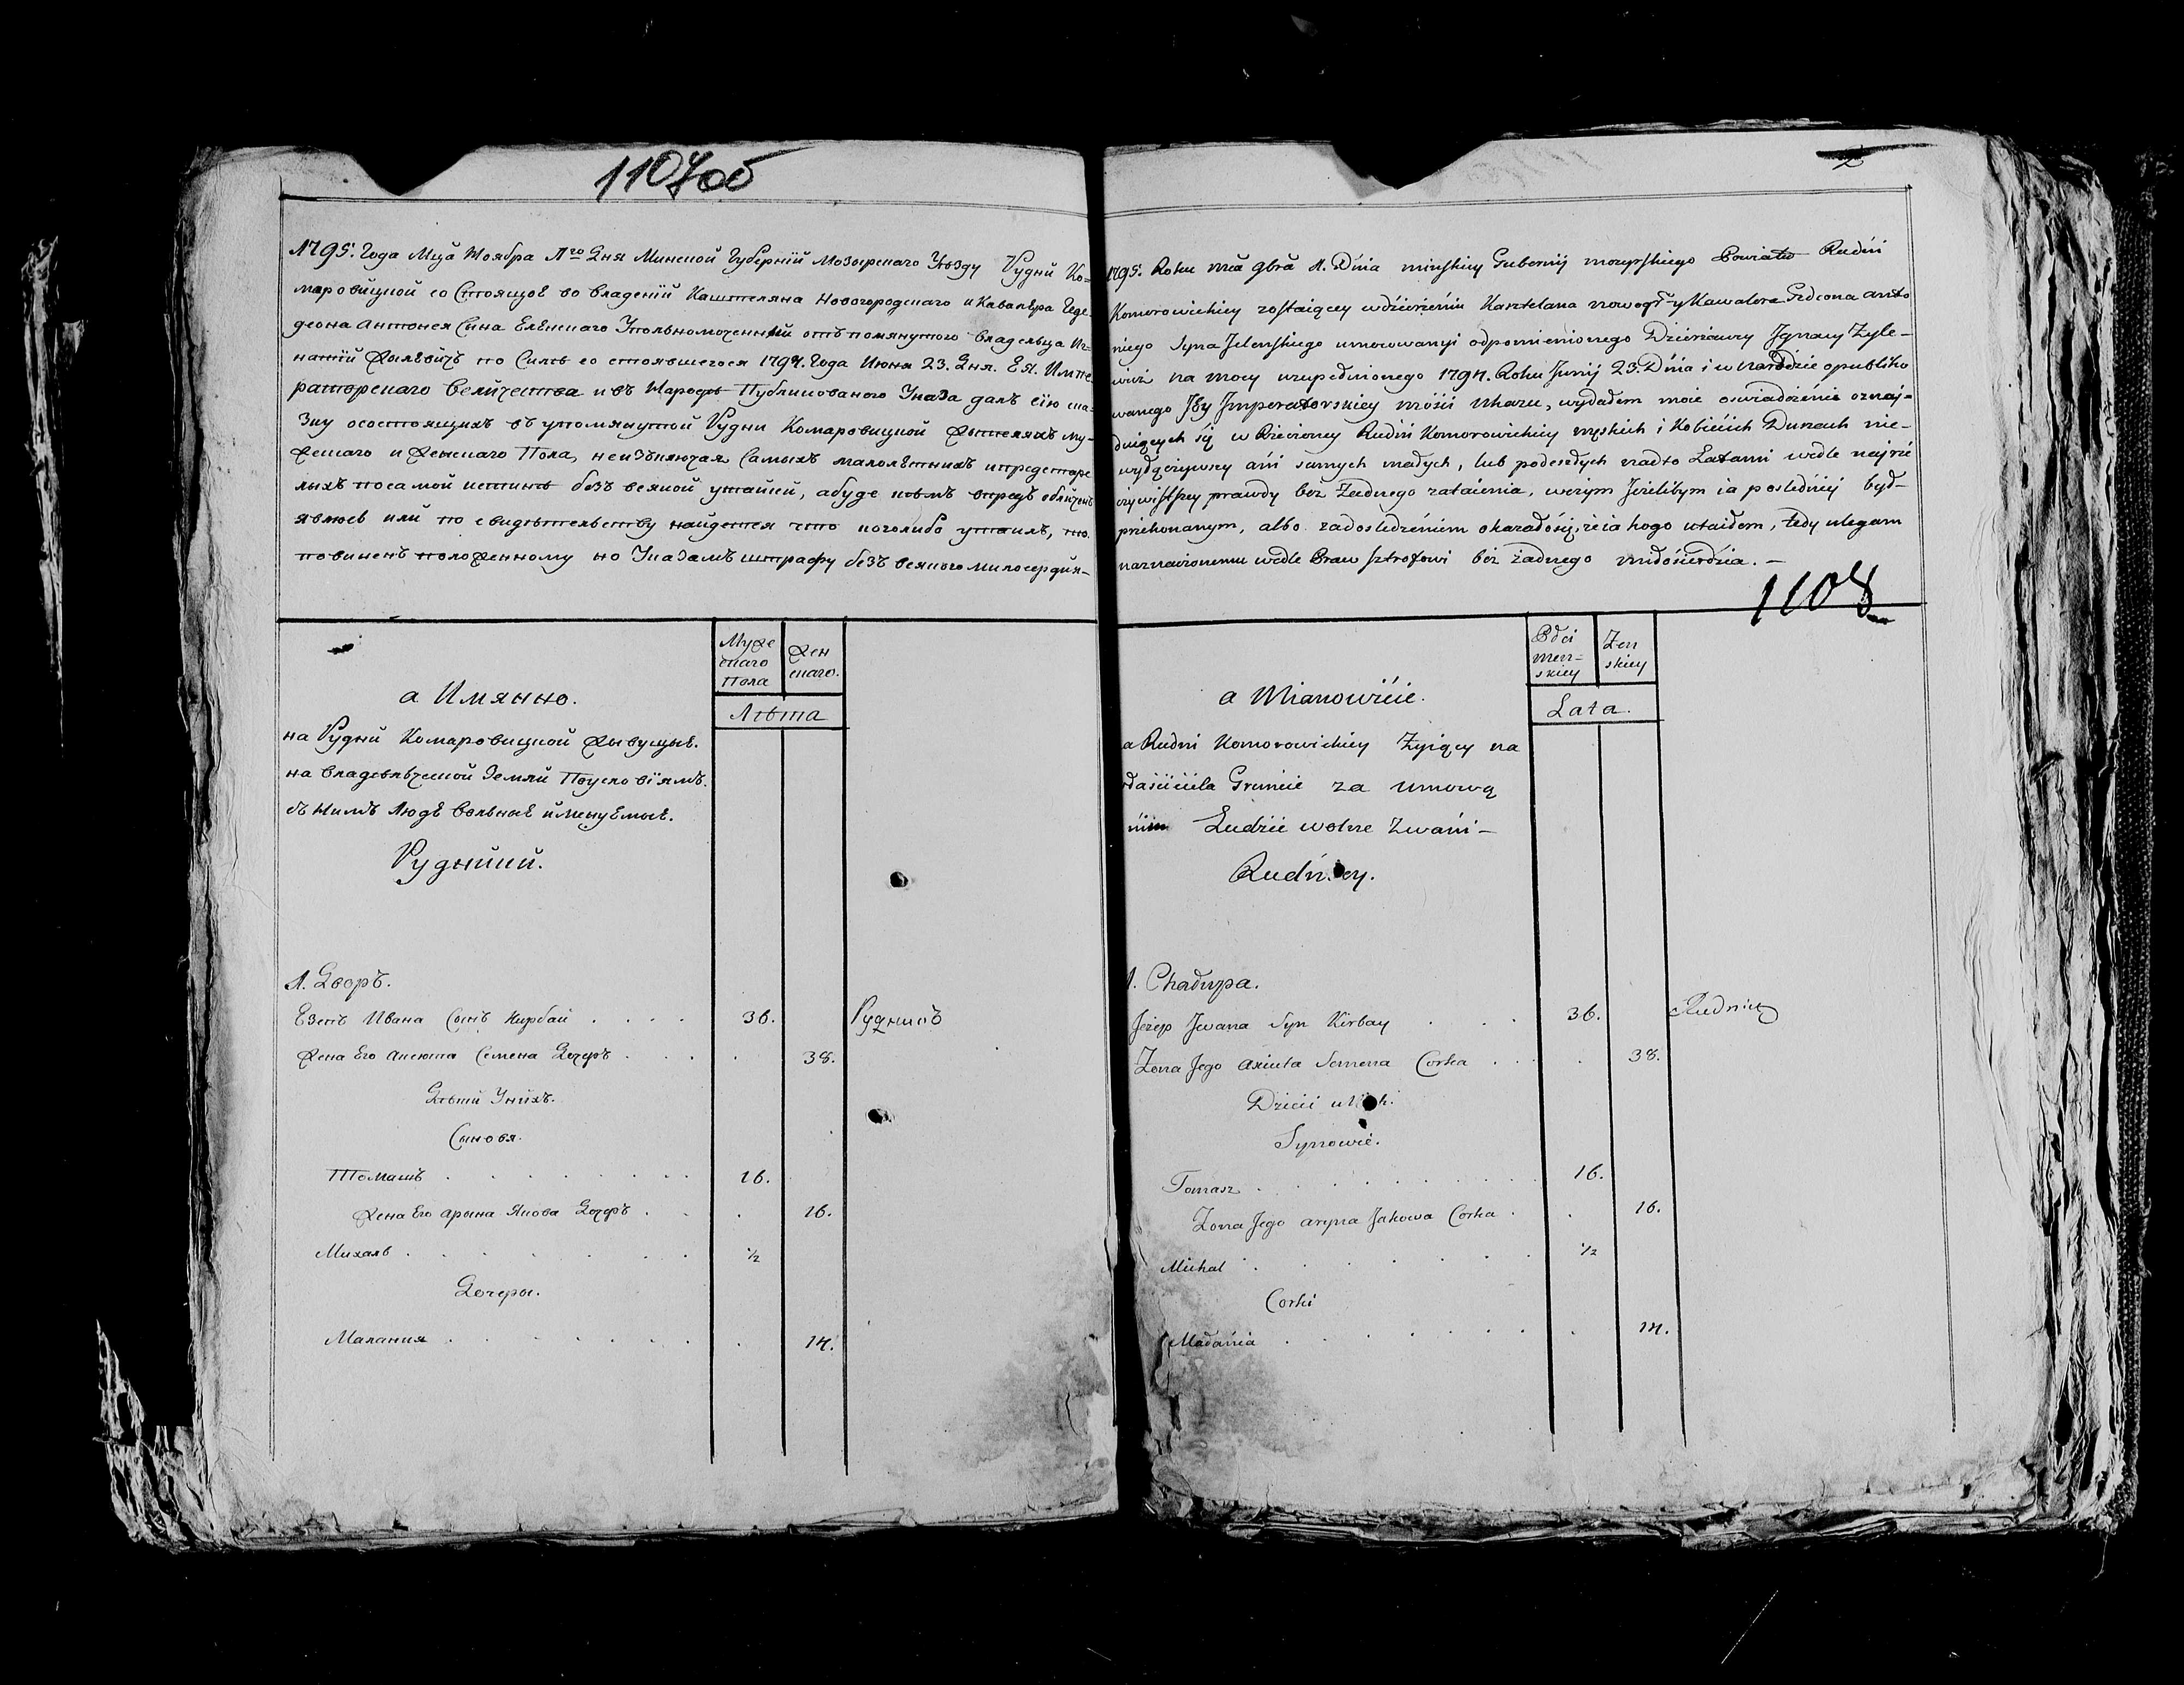 1107об
1795. Года Мца Ноября 1го Дня Минской Губернїй Мозырскаго Уѣзду Рудни Ко=
маровицкой со Стоящое во владенїй Каштеляна Новогородскаго и Кавалѣра Геде
деона Антонея Сина Еленскаго Упольномоченный отъ помянутого владельца Иг=
натїй Жылевичъ по Силѣ со стоявшегося 1794. Года Июня 23. Дня. Е Я. Импе
раторскаго Величества и въ Народъ Публикованого Указа далъ сїю ска=
Зку осостоящихъ въ упомянутой Рудни Комаровицкой Жителяхъ му=
жескаго и Женскаго Пола, неизъключая Самыхъ малолѣтнихъ ипрестаре
лыхъ посамой истинѣ безъ всякой утайки, абуде кѣмъ впредъ обличенъ
явлюсь или по свидѣтельству найдется что коголибо утаилъ, то
повиненъ положенному по Указамъ штрафу безъ всякого милосердия—
а Имянно.
Мужескаго Пола
Женскаго.
Лѣта
на Рудни Комаровицкой Живущые.
на владѣльческой Земли По условїямъ.
съ Нимъ Людѣ Вольные именуемые.
Рудники.
1. Дворъ.
Езепъ Ивана Сынъ Кирбай 36. Рудникъ
Жена Его Аксюта Семена Дочерь 38.
Дѣти У нихъ.
Сыновя.
Томашъ 16.
Жена Его Арына Якова Дочерь 16.
Михалъ ½
Дочеры.
Малания 14.
2
1795. Roku mca 9bra 1. Dnia minskiey Gubernij mozyrskiego Powiatu Rudni
Komorowickiey zostaiącey wdzierżeniu Kasztelana nowogr-y Kawalera Gedeona Anto
niego Syna Jelenskiego umocowanyi odpomienionego Dzierżawcy Jgnacy Zyle-
wicz na mocy uzupełnionego 1794. Roku Junij 23. Dnia i w Narodzie opubliko
wanego Jey Jmperatorskiey mości Ukazu, wydałem moie oswiadczenie oznay=
duiących się w Rzeczoney Rudni Komorowickiey męskich i Kobiécich Duszach nie-
wyłączywszy ani samych małych, lub podeszłych nadto Latami wedle nayrze
czywistszey prawdy bez żadnego zataienia, wczym Jeżelibym ia poslednicy był-
przekonanym, albo zadosledzeniem okazałosię, że ia kogo utaiłem, tedy ulegam
naznaczonemu wedle Praw Sztrofowi bez żadnego miłosierdzia. —
1108
a Mianowicie.
Płci men=skiey
Zenskiey
Lata.
a Rudni Komorowickiey Zyiący na
właściciela Gruncie za umową
nim Ludzie wolne Zwani —
Rudnicy.
1. Chałupa.
Jezep Jwana Syn Kirbay 36. Rudnik
Zona Jego Axiuta Semena Corka 38.
Dzieci u Nich.
Synowie.
Tomasz 16.
Zona Jego Aryna Jakowa Corka 16.
Michal ½
Corki
Małania 14.